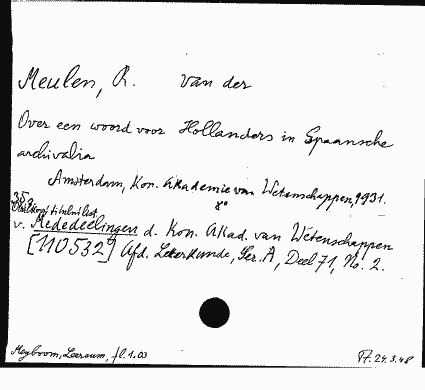 Meulen, R. van der
Over een woord voor Hollanders in Spaansche
archivalia
Amsterdam, Kon. Akademie van Wetenschappen, 1931.
8°
v. Mededeelingen d. Kon. Akad. van Wetenschappen
[110532] Afd. Letterkunde, Ser. A, Deel 71, No. 2.
Meyboom, Leersum, fl. 1.03
24.3.48